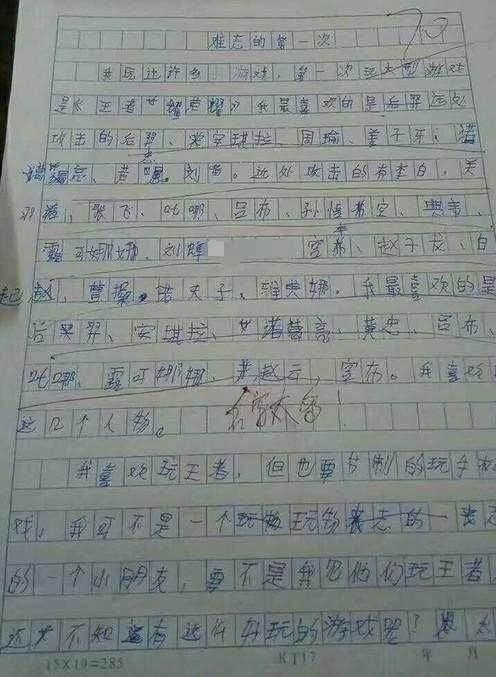 难忘的第一次
70
我玩过许多游戏,第一次玩大型游戏
是《王者荣耀》我最喜欢的是后羿远处
攻击的后羿、安琪拉、周瑜、姜子牙、诸
葛亮、刘备。近处攻击的有李白、关
羽、张飞、吕布、孙悟空、典韦、
露可娜娜、刘 空、赵子龙、白
起、曹操、诺夫子、雅典娜。我最喜欢的是
后羿、安琪拉、诸葛亮、黄忠、吕布、
哪、露可娜娜、赵云,空布。我喜欢
这几个人物。
名字太多!
我喜欢玩王者,但也要节制的玩手
戏,我可不是一个玩物丧志的
的一个小朋友,要不是我见他们玩王者
还不知道有这么好玩的游戏呢?
15×19=285
K117
年 月